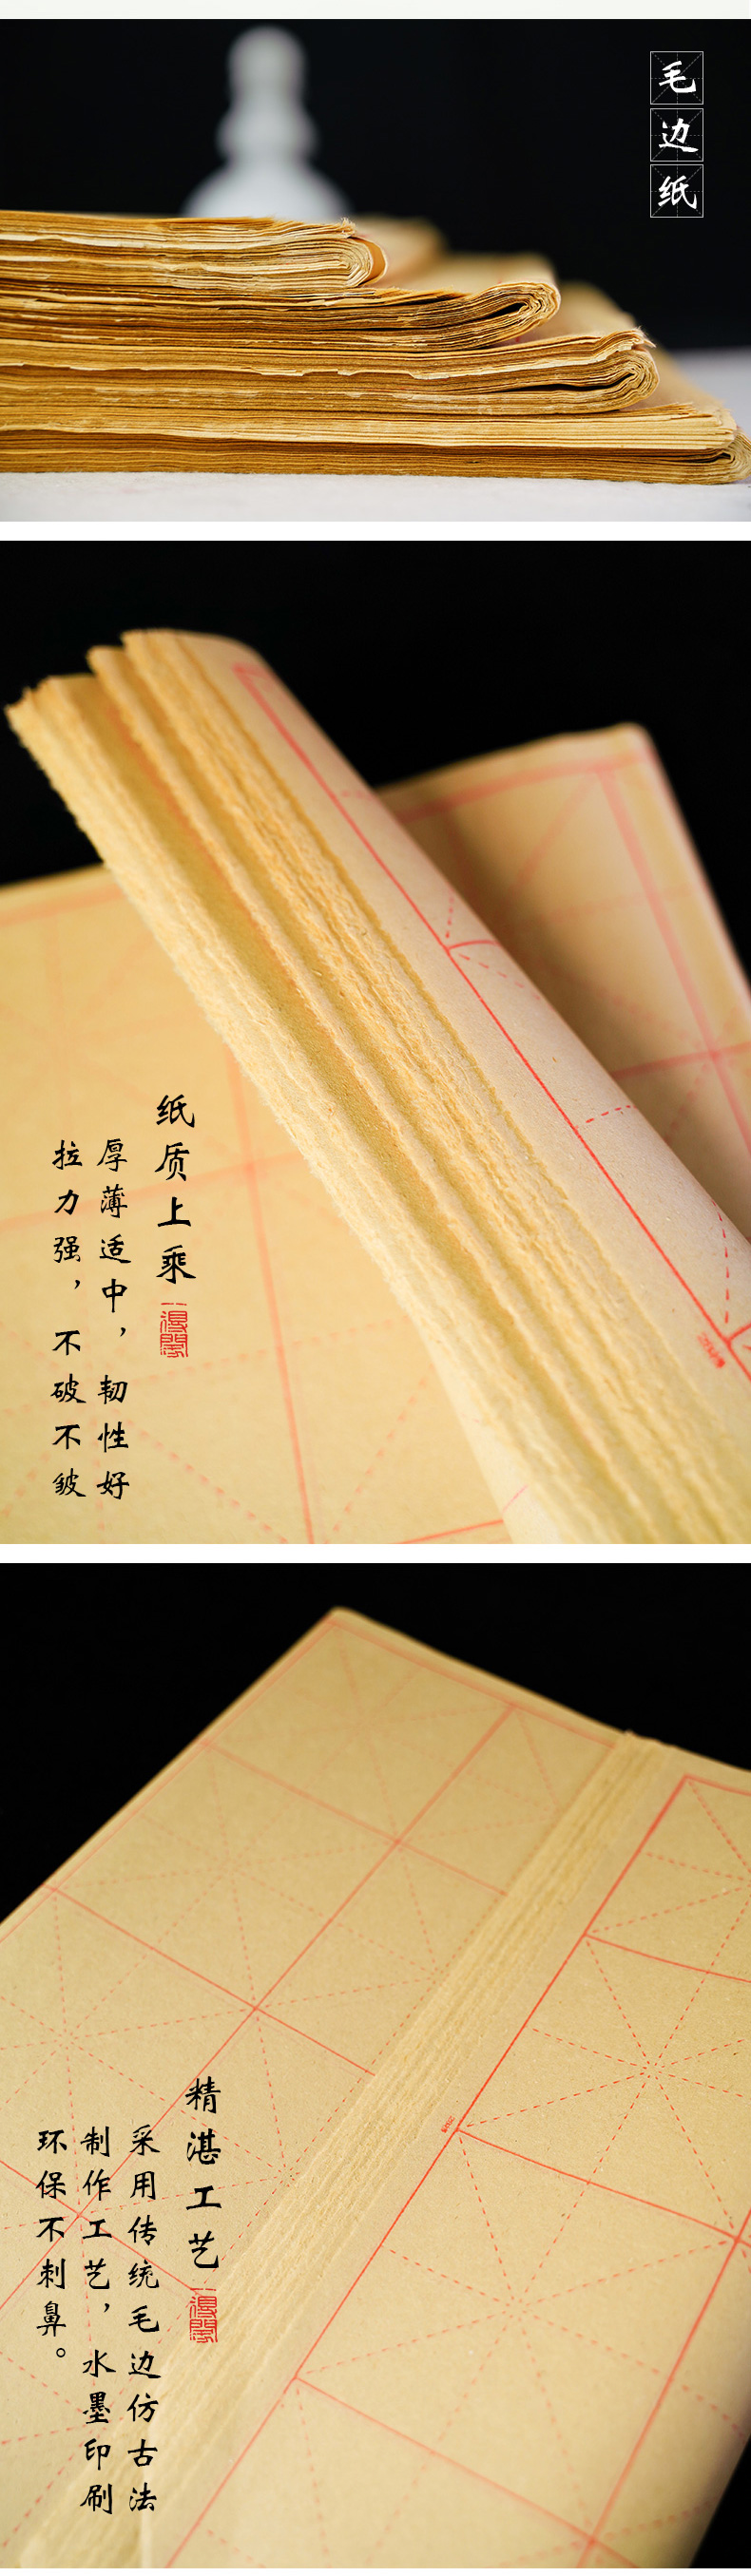 毛边纸
纸质上乘
厚薄适中，韧性好
拉力强，不破不皴
精湛工艺
采用传统毛边仿古法
制作工艺，水墨印刷
环保不刺鼻。